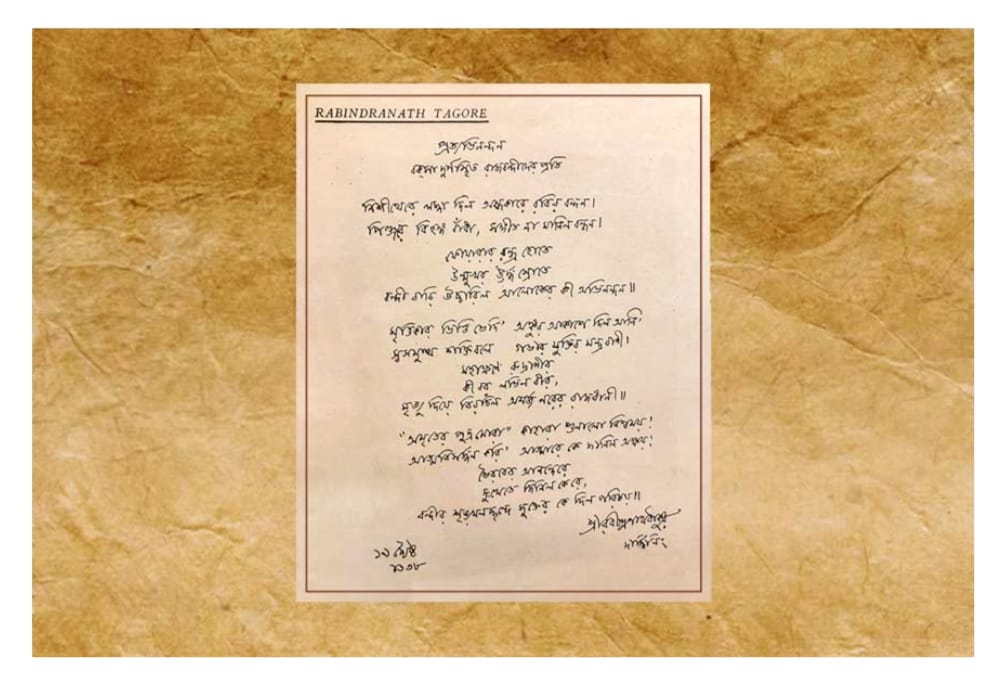 RABINDRANATH TAGORE
প্রত্যভিনন্দন
বক্সা দুর্গস্থিত রাজবন্দীদের প্রতি
নিশীথেরে লজ্জা দিল অন্ধকারে রবির বন্দন।
পিঞ্জরে বিহঙ্গ বাঁধা, সঙ্গীত না মানিল বন্ধন।
ফোয়ারার রন্ধ্র হোতে
উন্মুখর ঊর্ধ্ব স্রোতে
বন্দী বারি উচ্চারিল আলোকের কী অভিনন্দন॥
মৃত্তিকার ভিত্তি ভেদি' অঙ্কুর আকাশে দিল আনি'
স্বসমুত্থ শক্তিবলে গভীর মুক্তির মন্ত্রবাণী।
মহাক্ষণে রুদ্রাণীর
কী বর লভিল বীর,
মৃত্যু দিয়ে বিরচিল অমর্ত্য নরের রাজধানী॥
"অমৃতের পুত্র মোরা" কাহারা শুনালো বিশ্বময়!
আত্মবিসর্জন করি' আত্মারে কে জানিল অক্ষয়!
ভৈরবের আনন্দেরে
দুঃখেতে জিনিল কে রে,
বন্দীর শৃঙ্খলচ্ছন্দে মুক্তের কে দিল পরিচয়॥
শ্রীরবীন্দ্রনাথ ঠাকুর
দার্জ্জিলিং
১৯ জ্যৈষ্ঠ
১৩৩৮